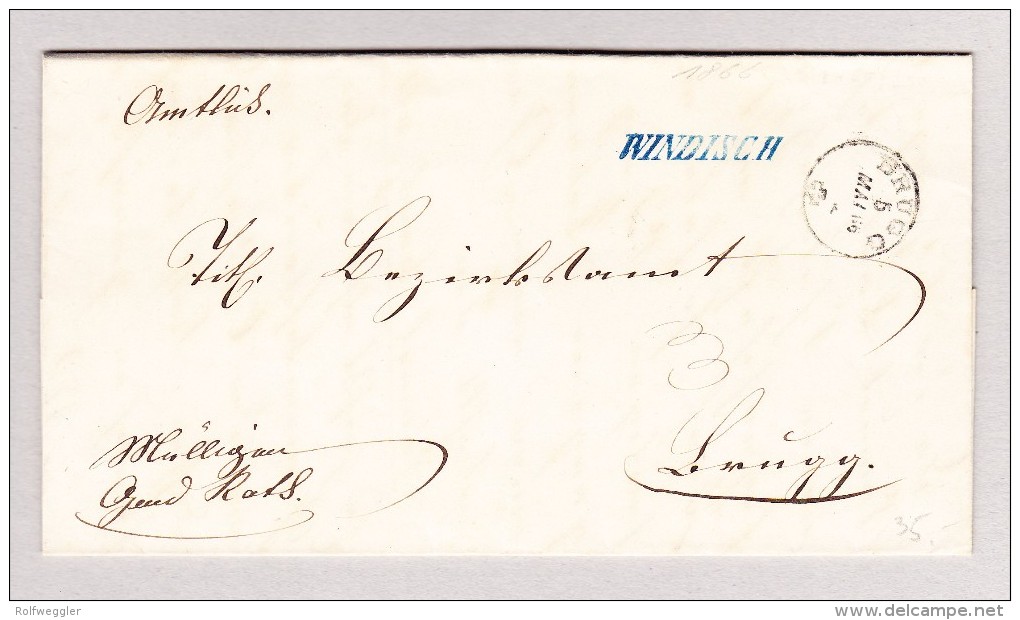 1866
Amtlich.
WINDISCH
BRUGG
5
MAI 66
Titl. Bezirksamt
Brugg.
Mülligen
Gemd Rath.
35.-
Rolfweggler
delcampe.net